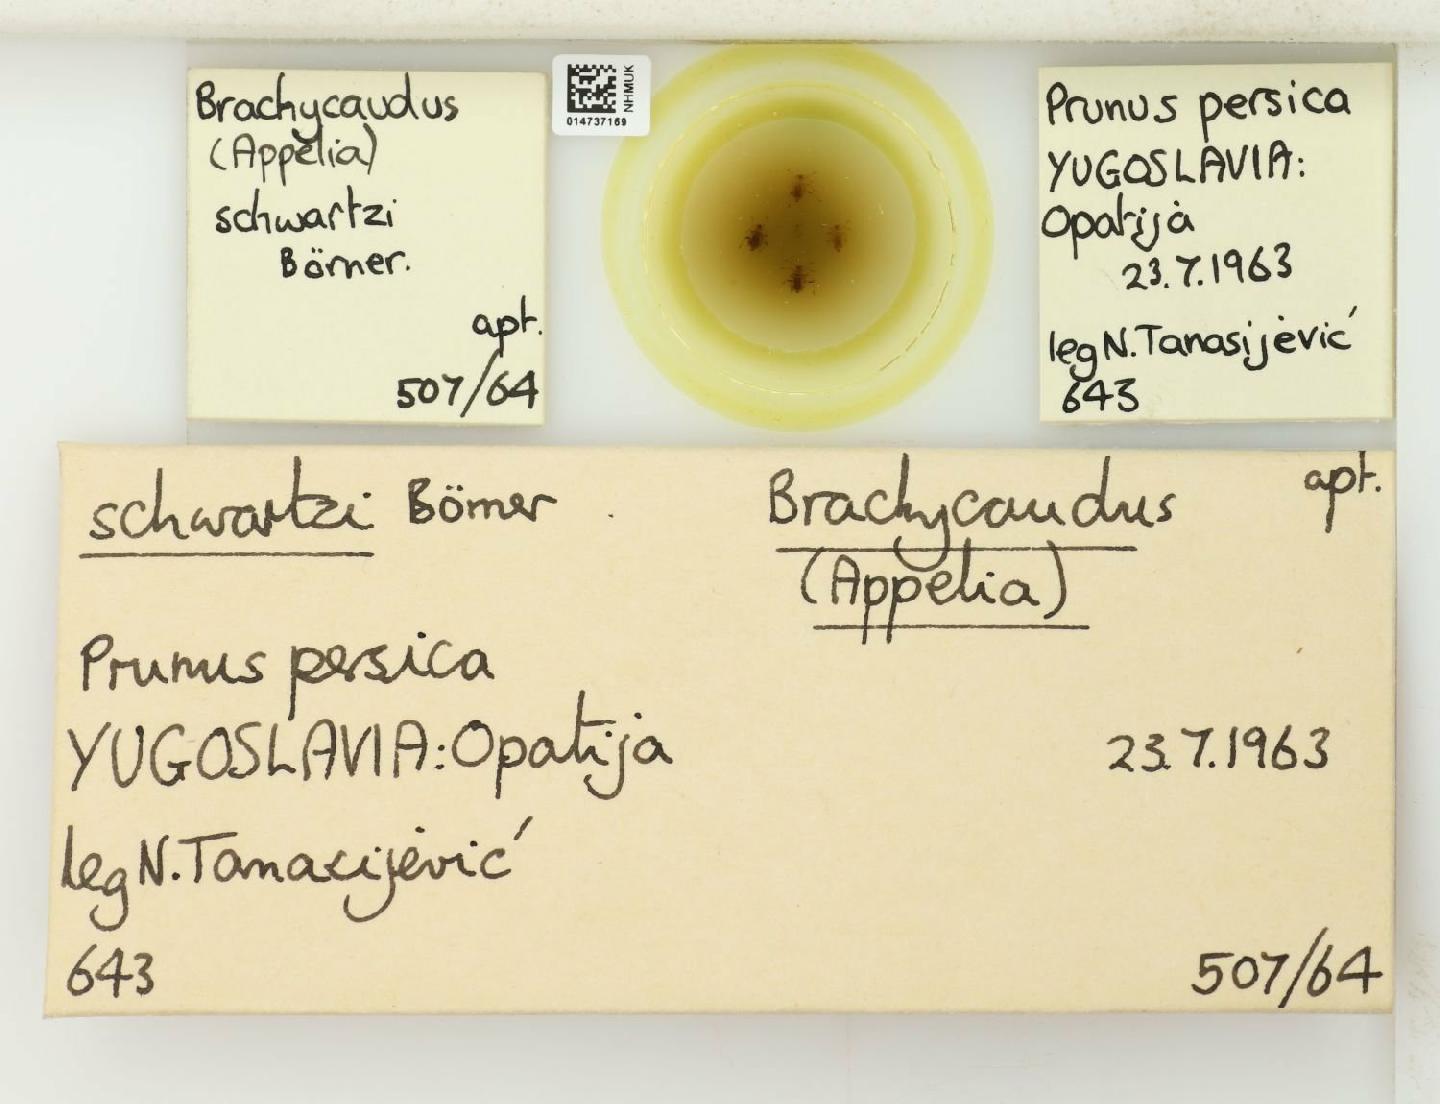 Brachycaudus
(Appelia)
schwartzi
Börner.
apt.
507/64
NHMUK
014737169
Prunus persica
YUGOSLAVIA:
Opatija
23.7.1963
leg N. Tanasijević
643
schwartzi Börner
Brachycaudus
(Appelia)
apt.
Prunus persica
YUGOSLAVIA: Opatija
23.7.1963
leg N. Tanasijević
643
507/64